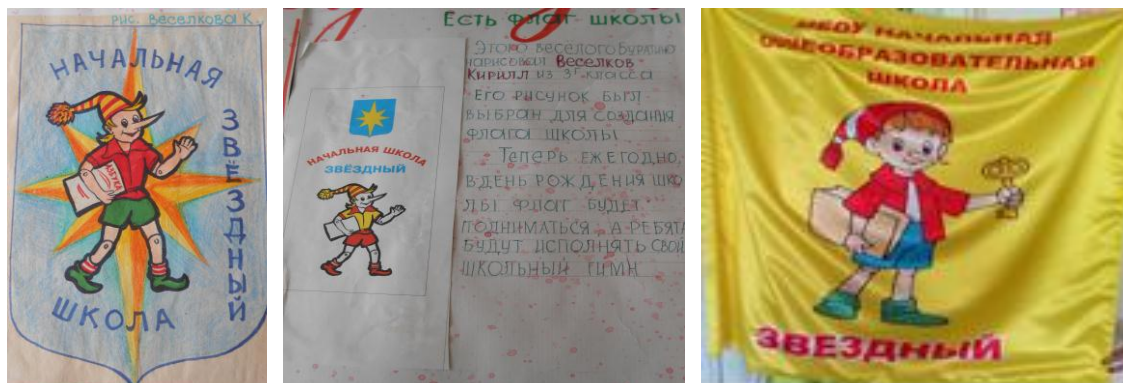 рис. Веселкова К.
НАЧАЛЬНАЯ
ЗВЁЗДНЫЙ
ШКОЛА
Есть флаг школы
Этого весёлого Буратино
нарисовал Веселков
Кирилл из 3 класса
Его рисунок был
выбран для создания
флага школы
Теперь ежегодно,
в день рождения шко
лы флаг будет
подниматься, а ребята
будут исполнять свой
школьный гимн
НАЧАЛЬНАЯ ШКОЛА
ЗВЁЗДНЫЙ
МБОУ НАЧАЛЬНАЯ
ОБЩЕОБРАЗОВАТЕЛЬНАЯ
ШКОЛА
ЗВЕЗДНЫЙ